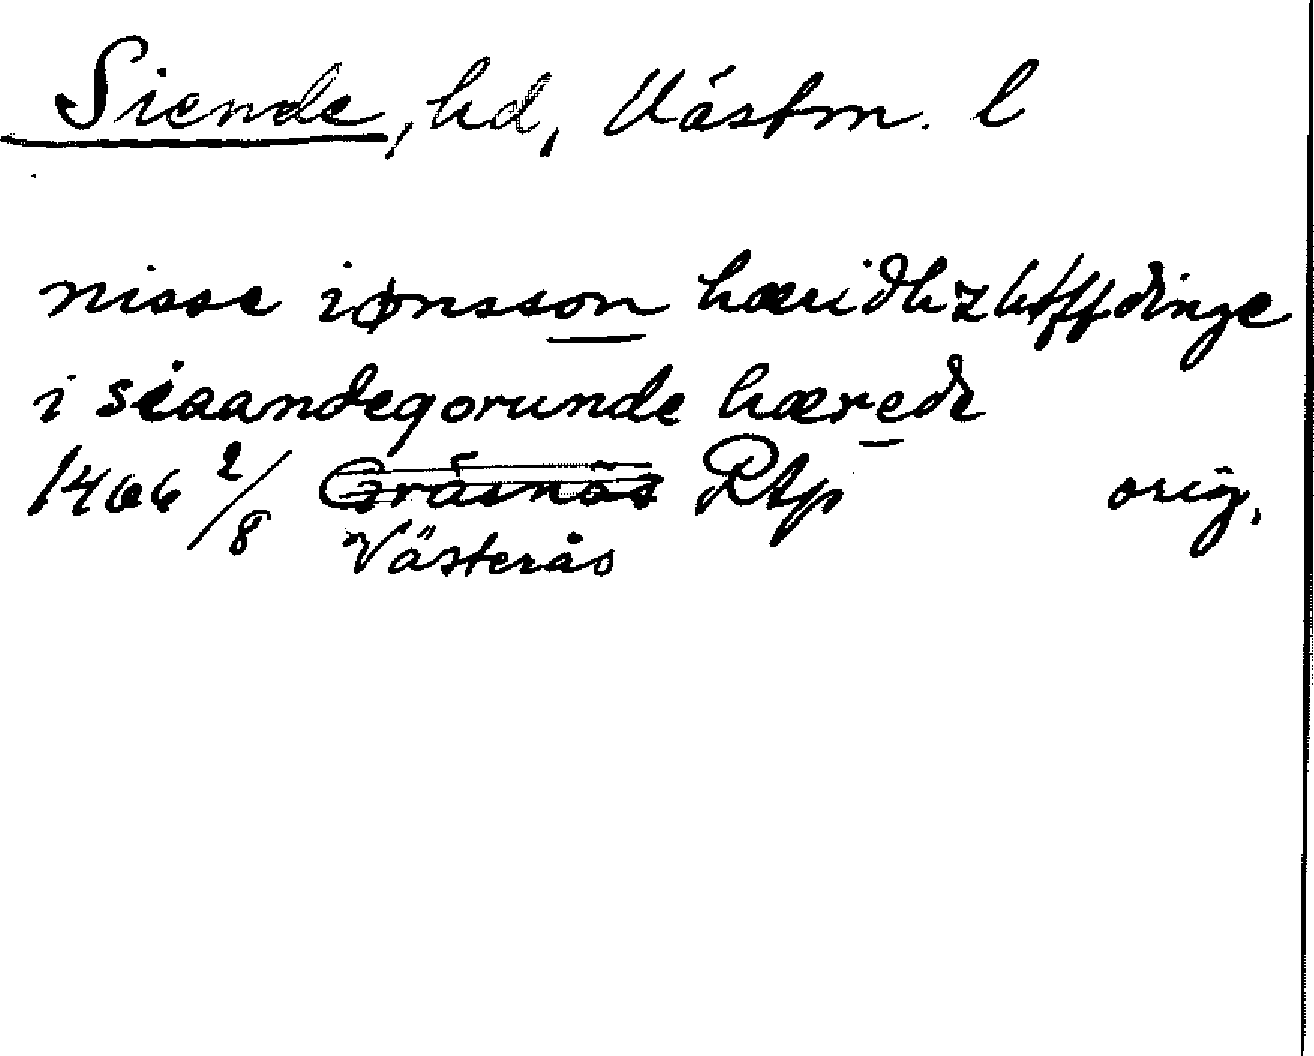 Siende, hd, Västm. l
nisse iønsson hæridhzhøffdinge
i siaandegorunde hærede
1406 2/8 Gräsnäs Rtp orig.
Västerås